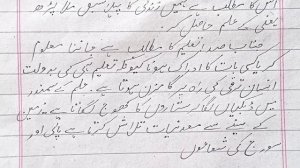 کا مطلب ہے ہمیں زندگی کا پہلا سبق ملا پڑھ
یعنی کے علم حاصل کر۔
جناب صدر! تعلیم کا مطلب ہے جاننا معلوم
کرنا کسی بات کا ادراک ہونا کیونکہ تعلیم ہی کی بدولت
انسان ترقی کی راہ پر گامزن ہوتا ہے۔ علم کے سمندر
میں ڈبکیاں لگا کر ستاروں کا کھوج لگاتا ہے زمین
کے سینے سے معدنیات تلاش کرتا ہے پانی اور
سورج کی شعاعوں